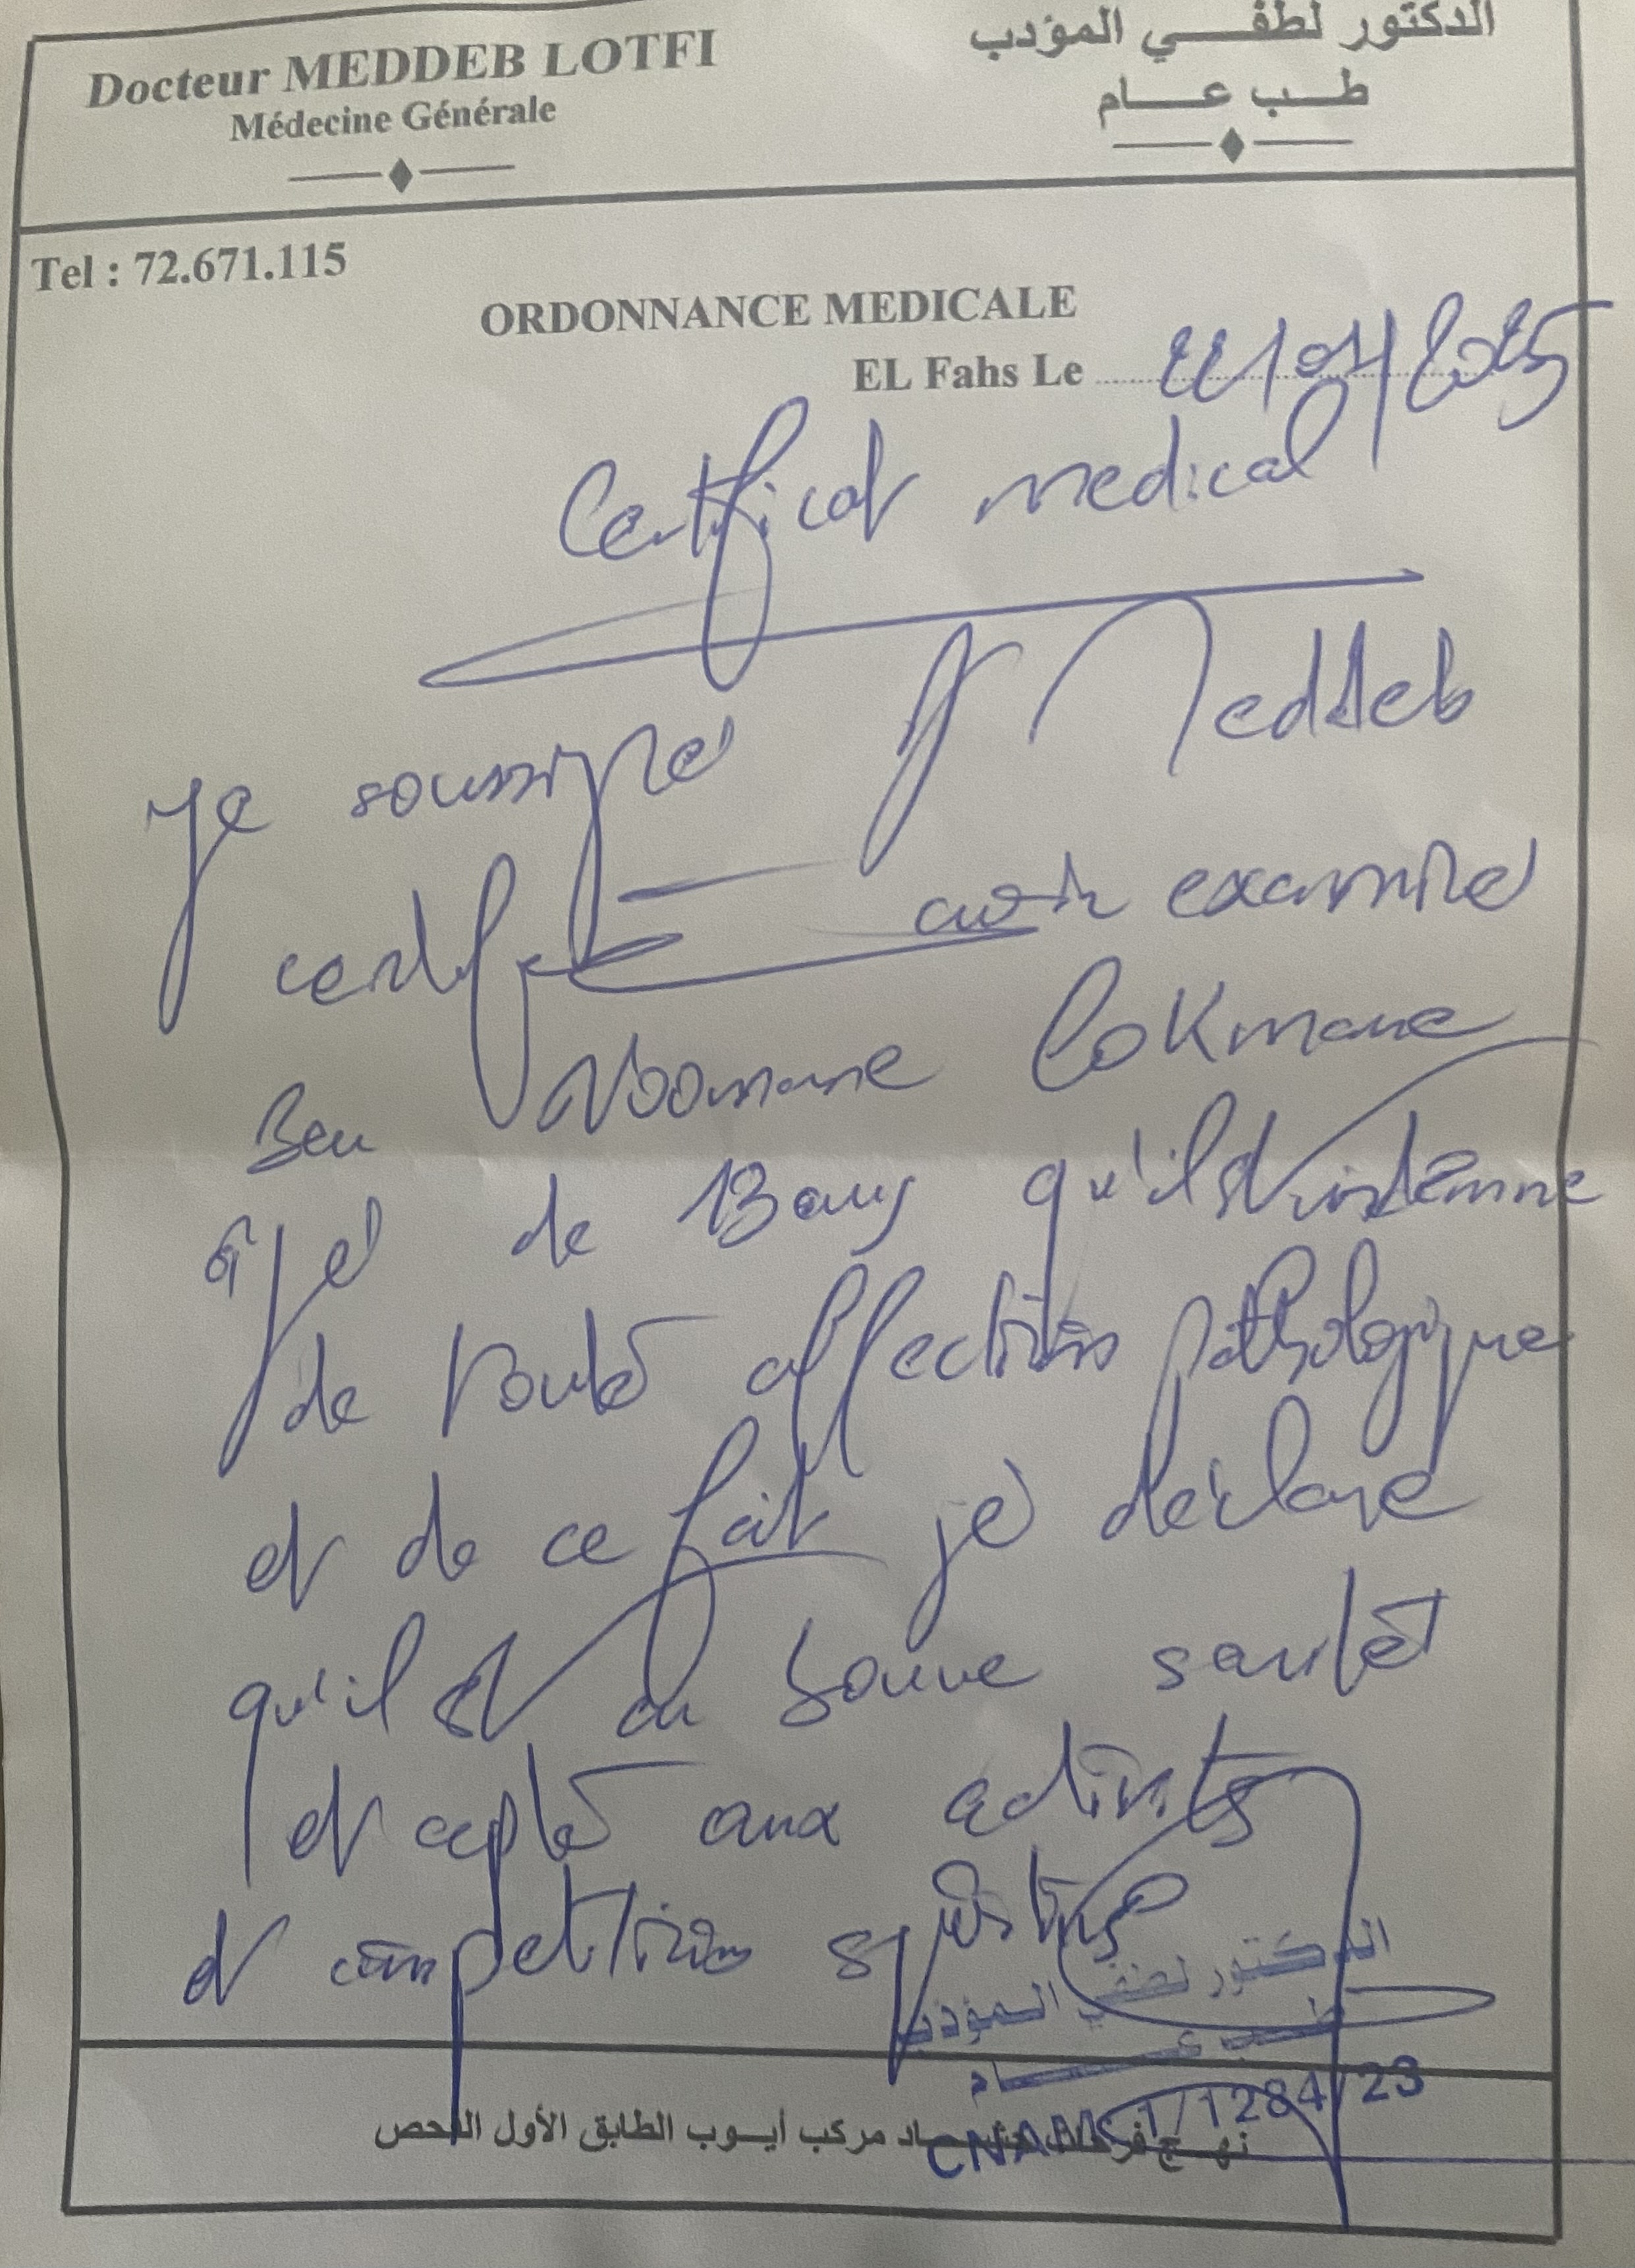 Docteur MEDDEB LOTFI
Médecine Générale
الدكتور لطفي المؤدب
طب عام
Tel : 72.671.115
ORDONNANCE MEDICALE
EL Fahs Le /2025
Certificat medical
Je soussigné Dr Meddeb
certifie avoir examiné
Ben Noomane Lokmane
âgé de 13 ans qu'il est indemne
de toute affections pathologique
et de ce fait je déclare
qu'il est en bonne santé
et apte aux activités
et compétitions sportives
الدكتور لطفي المؤدب
طب عام
CNAM 1/1284/23
مركب أيوب الطابق الأول الفحص